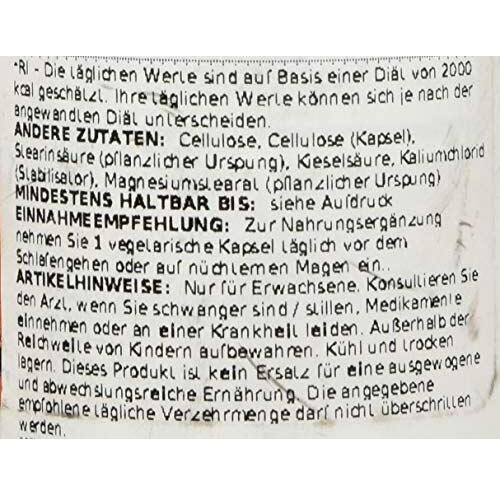 *RI - Die täglichen Werte sind auf Basis einer Diät von 2000
kcal geschätzt. Ihre täglichen Werte können sich je nach der
angewandten Diät unterscheiden.
ANDERE ZUTATEN: Cellulose, Cellulose (Kapsel),
Stearinsäure (pflanzlicher Urspung), Kieselsäure, Kaliumchlorid
(Stabilisator), Magnesiumstearat (pflanzlicher Urspung)
MINDESTENS HALTBAR BIS: siehe Aufdruck
EINNAHMEEMPFEHLUNG: Zur Nahrungsergänzung
nehmen Sie 1 vegetarische Kapsel täglich vor dem
Schlafengehen oder auf nüchternen Magen ein..
ARTIKELHINWEISE: Nur für Erwachsene. Konsultieren Sie
den Arzt, wenn Sie schwanger sind / stillen, Medikamente
einnehmen oder an einer Krankheit leiden. Außerhalb der
Reichweite von Kindern aufbewahren. Kühl und trocken
lagern. Dieses Produkt ist kein Ersatz für eine ausgewogene
und abwechslungsreiche Ernährung. Die angegebene
empfohlene tägliche Verzehrmenge darf nicht überschritten
werden.